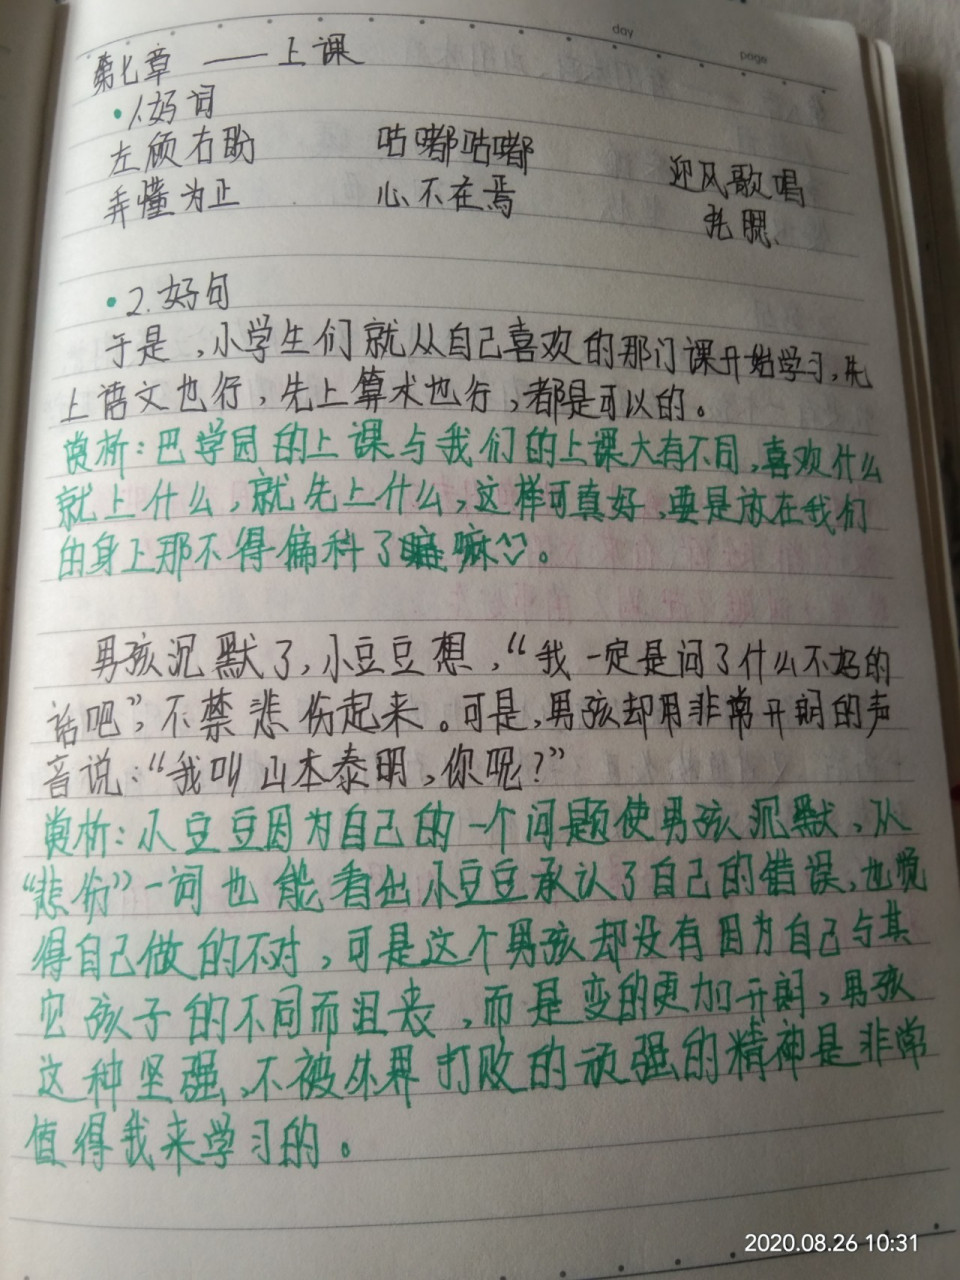 day
page
第七章 ——上课
·1.好词
左顾右盼 咕嘟咕嘟 迎风歌唱
弄懂为止 心不在焉 托腮、
·2.好句
于是,小学生们就从自己喜欢的那门课开始学习,先
上语文也行,先上算术也行,都是可以的。
赏析:巴学园的上课与我们的上课大有不同,喜欢什么
就上什么,就先上什么,这样可真好,要是放在我们
的身上那不得偏科了嘛。
男孩沉默了,小豆豆想,“我一定是问了什么不好的
话吧”,不禁悲伤起来。可是,男孩却用非常开朗的声
音说:“我叫山本泰明,你呢?”
赏析:小豆豆因为自己的一个问题使男孩沉默,从
“悲伤”一词也能看出小豆豆承认了自己的错误,也觉
得自己做的不对,可是这个男孩却没有因为自己与其
它孩子的不同而沮丧,而是变的更加开朗,男孩
这种坚强、不被外界打败的顽强的精神是非常
值得我来学习的。
2020.08.26 10:31